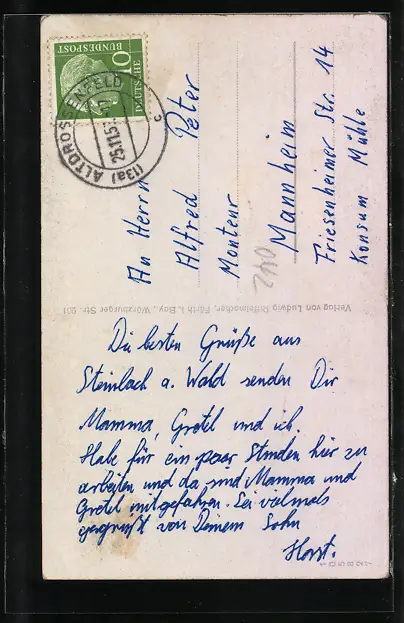 DEUTSCHE
BUNDESPOST
10
(13a) ALTDROSSENFELD
25.11.57
c
An Herrn
Alfred Peter
Monteur
Mannheim
Friesenheimer Str. 14
Konsum Mühle
Verlag von Ludwig Riffelmacher, Fürth i. Bay., Würzburger Str. 201
Die besten Grüße aus
Steinbach a. Wald senden Dir
Mamma, Gretel und ich.
Habe für ein paar Stunden hier zu
arbeiten und da sind Mamma und
Gretel mitgefahren. Sei vielmals
gegrüßt von Deinem Sohn
Horst.